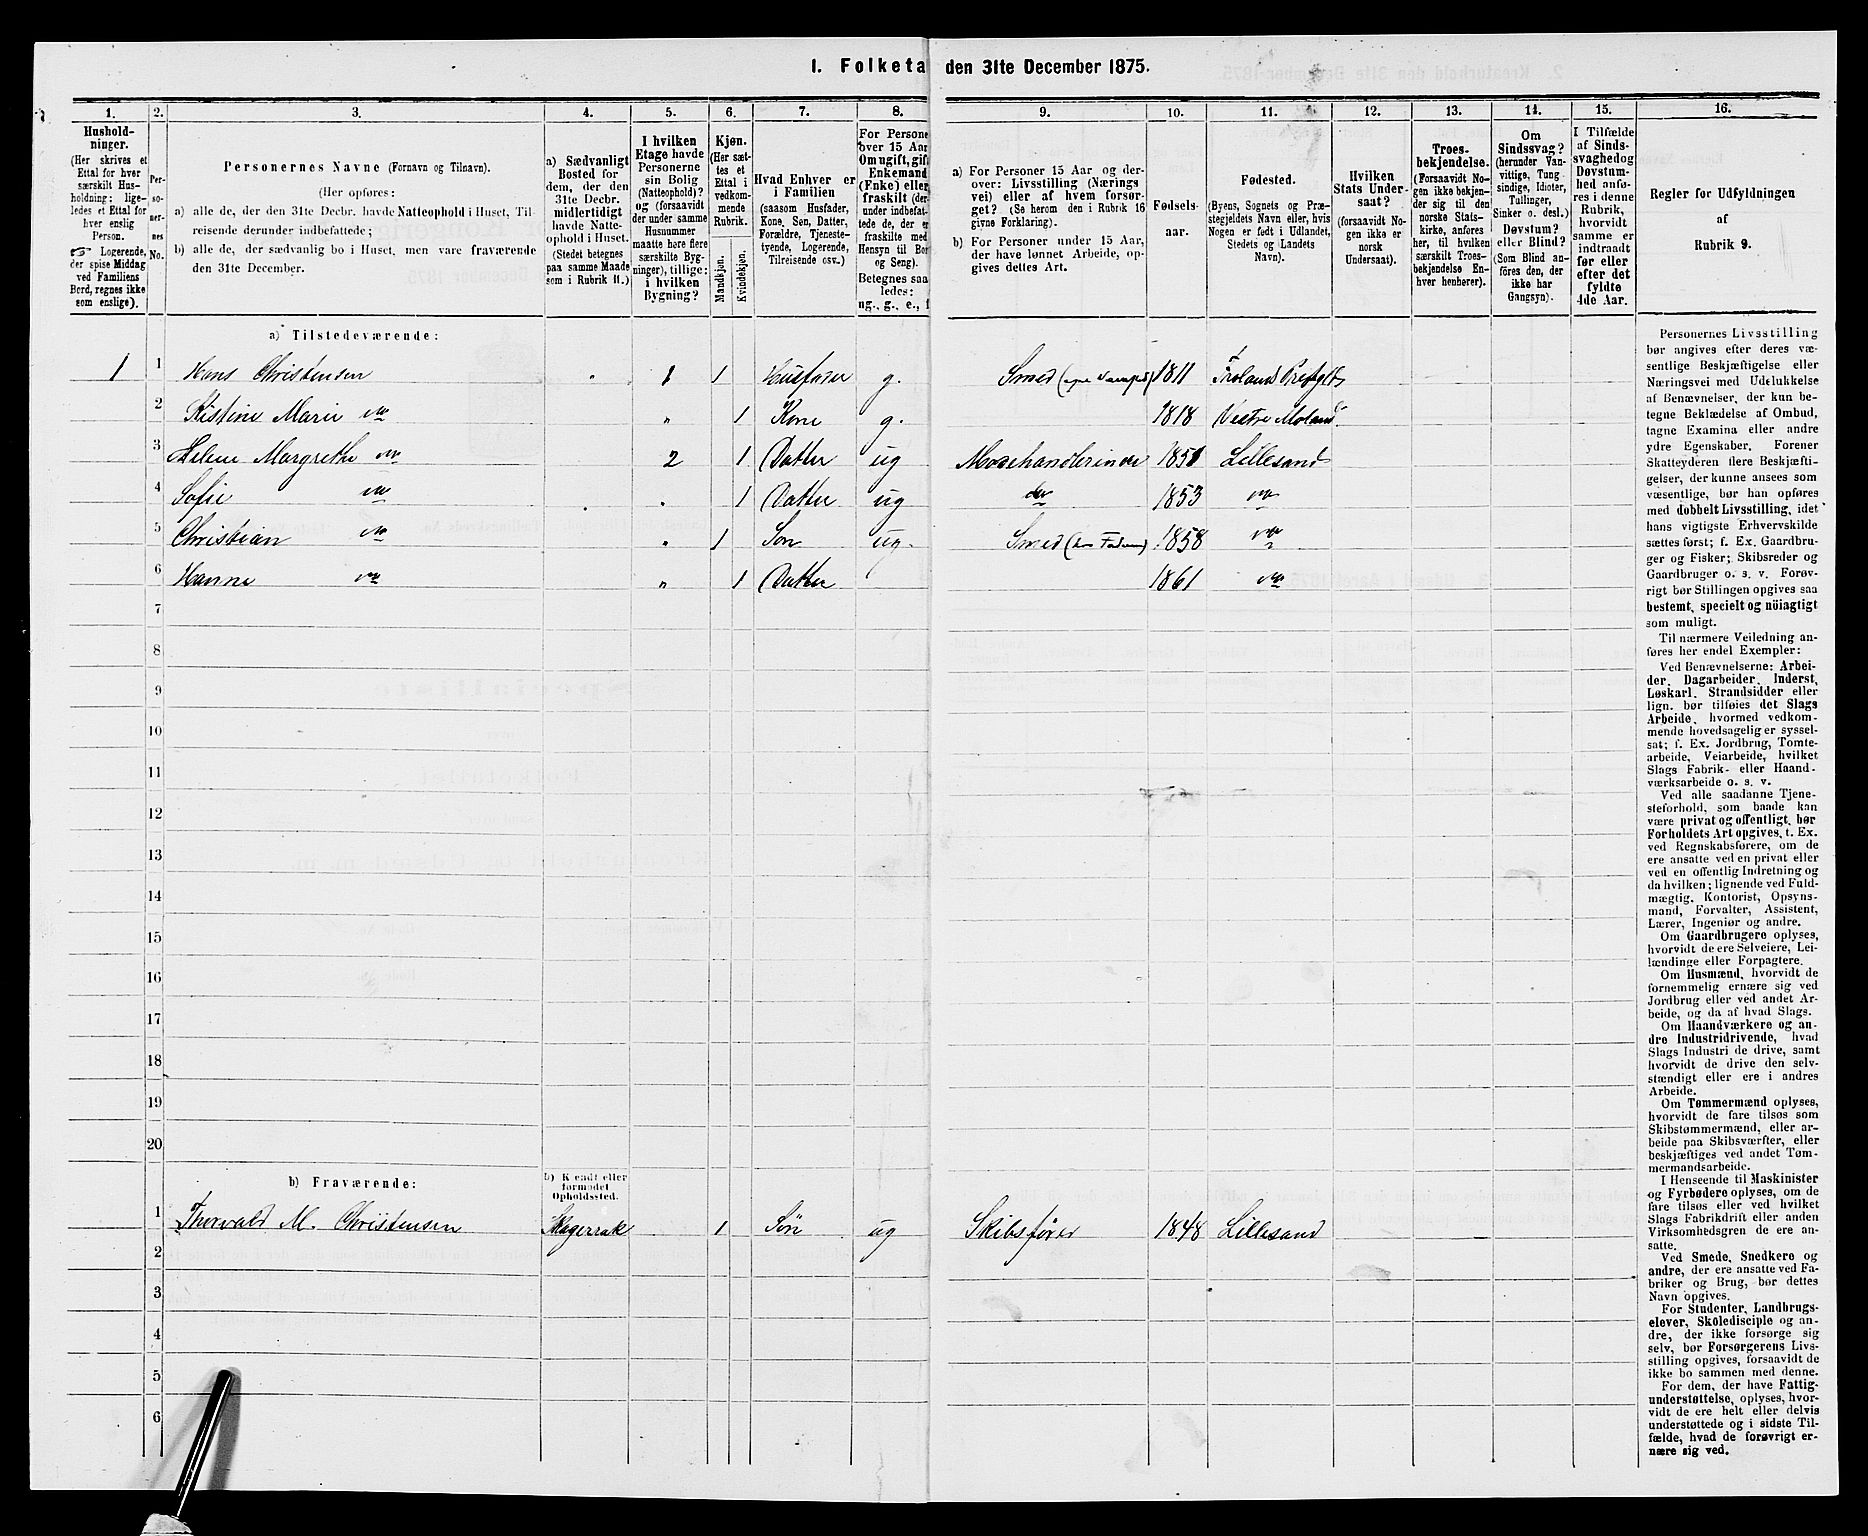 1. Folketa den 31te December 1875.
1. 2. 3. 4. 5. 6. 7. 8. 9. 10. 11. 12. 13. 14. 15. 16.
Hushold-
ninger.
(Her skrives et
Ettal for hver
særskilt Hus-
holdning; lige-
ledes et Ettal for
hver enslig
Person.
Logerende,
der spise Middag
ved Familiens
Bord, regnes ikke
som enslige).
Per-
so-
ner-
nes
No.
Personernes Navne (Fornavn og Tilnavn).
(Her opføres:
a) alle de, der den 31te Decbr. havde Natteophold i Huset, Til-
reisende derunder indbefattede;
b) alle de, der sædvanlig bo i Huset, men vare fraværende
den 31te December.
a) Sædvanligt
Bosted for
dem, der den
31te Decbr.
midlertidigt
havde Natte-
ophold i Huset.
(Stedet betegnes
paa samme Maade
som i Rubrik 11.)
I hvilken
Etage havde
Personerne
sin Bolig
(Natteophold)?
og (forsaavidt
der under samme
Husnummer
maatte høre flere
særskilte Byg-
ninger), tillige:
i hvilken
Bygning?
Kjøn.
(Her sæt-
tes et
Ettal i
vedkom-
mende
Rubrik.
Mandkjøn.
Kvindekjøn.
Hvad Enhver er
i Familien
(saasom Husfader,
Kone, Søn, Datter,
Forældre, Tjeneste-
tyende, Logerende,
Tilreisende osv.)
For Persone
over 15 Aar
Om ugift, gift
Enkemand
(Enke) eller
fraskilt (der-
under indbefat-
tede de, der e
fraskilte med
Hensyn til Bor
og Seng).
Betegnes saa
ledes:
ug., g., e., f
a) For Personer 15 Aar og der-
over: Livsstilling (Nærings
vei) eller af hvem forsør-
get? (Se herom den i Rubrik 16
givne Forklaring).
b) For Personer under 15 Aar,
der have lønnet Arbeide, op-
gives dettes Art.
Fødsels-
aar.
Fødested.
(Byens, Sognets og Præ-
stegjeldets Navn eller, hvis
Nogen er født i Udlandet,
Stedets og Landets
Navn).
Hvilken
Stats Under-
saat?
(forsaavidt No-
gen ikke er
norsk
Undersaat).
Troes-
bekjendelse.
(Forsaavidt No-
gen ikke bekjen-
der sig til den
norske Stats-
kirke, anføres
her, til hvilken
særskilt Troes-
bekjendelse En-
hver henhører).
Om
Sindssvag?
(herunder Van-
vittige, Tung
sindige, Idioter,
Tullinger,
Sinker o. desl.)
Døvstum?
eller Blind?
(Som Blind an-
føres den, der
ikke har
Gangsyn).
I Tilfælde
af Sinds-
svaghed og
Døvstum-
hed anfø-
res i denne
Rubrik,
hvorvidt
samme er
indtraadt
før eller
efter det
fyldte
4de Aar.
Regler for Udfyldningen
af
Rubrik 9.
a) Tilstedeværende:
1 1 Hans Christensen 1 1 Husfader g. Smed 1811 Froland Præstgld
2 Kistine Marie do " 1 Kone g. 1818 Vestre Moland
3 Helene Margrethe do 2 1 Datter ug Modehandlerinde 1851 Lillesand
4 Sofie do " 1 Datter ug do 1853 do
5 Christian do " 1 Søn ug. Smed (hos Faderen) 1858 do
6 Hanne do " 1 Datter 1861 do
7
8
9
10
11
12
13
14
15
16
17
18
19
20
b) Fraværende:
b) Kjendt eller
formodet
Opholdssted.
1 Thorvald M. Christensen Skagerrak 1 Søn ug Skibsfører 1848 Lillesand
2
3
4
5
6
Personernes Livsstilling
bør angives efter deres væ-
sentlige Beskjæftigelse eller
Næringsvei med Udelukkelse
af Benævnelser, der kun be-
tegne Beklædelse af Ombud,
tagne Examina eller andre
ydre Egenskaber. Forener
Skatteyderen flere Beskjæfti-
gelser, der kunne ansees som
væsentlige, bør han opføres
med dobbelt Livsstilling, idet
hans vigtigste Erhvervskilde
sættes først; f. Ex. Gaardbru-
ger og Fisker; Skibsreder og
Gaardbruger o. s. v. Forøv-
rigt bør Stillingen opgives saa
bestemt, specielt og nöiagtigt
som muligt.
Til nærmere Veiledning an-
føres her endel Exempler:
Ved Benævnelserne: Arbei-
der, Dagarbeider, Inderst,
Løskarl, Strandsidder eller
lign. bør tilføies det Slags
Arbeide, hvormed vedkom-
mende hovedsagelig er syssel-
sat; f. Ex. Jordbrug, Tomte-
arbeide, Veiarbeide, hvilket
Slags Fabrik- eller Haand-
værksarbeide o. s. v.
Ved alle saadanne Tjene-
steforhold, som baade kan
være privat og offentligt, bør
Forholdets Art opgives, t. Ex.
ved Regnskabsførere, om de
ere ansatte ved en privat eller
ved en offentlig Indretning og
da hvilken; lignende ved Fuld-
mægtig, Kontorist, Opsyns-
mand, Forvalter, Assistent,
Lærer, Ingeniør og andre.
Om Gaardbrugere oplyses,
hvorvidt de ere Selveiere, Lei-
lændinge eller Forpagtere.
Om Husmænd, hvorvidt de
fornemmelig ernære sig ved
Jordbrug eller ved andet Ar-
beide, og da af hvad Slags.
Om Haandværkere og an-
dre Industridrivende, hvad
Slags Industri de drive, samt
hvorvidt de drive den selv-
stændigt eller ere i andres
Arbeide.
Om Tømmermænd oplyses,
hvorvidt de fare tilsøs som
Skibstømmermænd, eller ar-
beide paa Skibsværfter, eller
beskjæftiges ved andet Tøm-
mermandsarbeide.
I Henseende til Maskinister
og Fyrbødere oplyses, om de
fare tilsøs eller ved hvilket
Slags Fabrikdrift eller anden
Virksomhedsgren de ere an-
satte.
Ved Smede, Snedkere og
andre, der ere ansatte ved Fa-
briker og Brug, bør dettes
Navn opgives.
For Studenter, Landbrugs-
elever, Skoledisciple og an-
dre, der ikke forsørge sig
selv, bør Forsørgerens Livs-
stilling opgives, forsaavidt de
ikke bo sammen med denne.
For dem, der have Fattig-
understøttelse, oplyses, hvor-
vidt de ere helt eller delvis
understøttede og i sidste Til-
fælde, hvad de forøvrigt er-
nære sig ved.